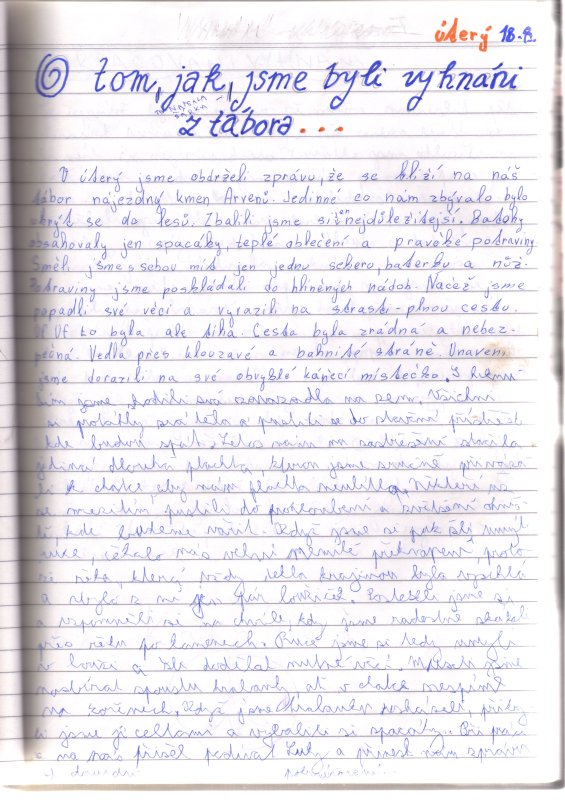 úterý 18.8.
O tom, jak, jsme byli vyhnáni
z tábora...
V úterý jsme obdrželi zprávu, že se blíží na náš
tábor nájezdný kmen Arvenů. Jedinné co nám zbývalo bylo
ukrýt se do lesů. Zbalili jsme si jen nejdůležitější. Batohy
obsahovaly jen spacáky, teplé oblečení a pravěké potraviny
Směli jsme s sebou mít jen jednu sekeru, baterku a nůž.
Potraviny jsme poskládali do hliněných nádob. Načež jsme
popadli své věci a vyrazili na strasti-plnou cestu.
Uf Uf to byla ale tíha. Cesta byla zrádná a nebez-
pečná. Vedla přes klouzavé a bahnité stráně. Unaveni
jsme dorazili na své obvyklé kápěcí místečko. S
jsme hodili svá zavazadla na zem, všichni
si protáhly svá těla a pustili se do stavění přístřeší
kde budou spát. Letos nám na zastřešení stačila
jediná dlouhá plachta, kterou jsme
li k chatce, aby nám plachta neulítla. Někteří už
se mezitím pustili do prohloubení a zvětšení ohniš-
tě, kde budeme vařit. Když jsme si pak šli umýt
ruce, čekalo nás velmi nemilé překvapení, proto-
že řeka, která vždy tekla krajinou byla vyschlá
a zbylo z ní jen pár loužiček. Posteskli jsme si
a vzpomněli si na chvíle, kdy jsme radostně skákali
přes řeku po kamenech. Ruce jsme si tedy umyli
v louži a šli dodělat nutné věci. Museli jsme
nasbírat spoustu hrabanky, ať v chatce nespíme
na kořenech. Když jsme hrabanku poskládali, přikry-
li jsme ji celtami a vybalili si spacáky. Při práci
se na nás přišel podívat Luky a přinesl nám zprávu